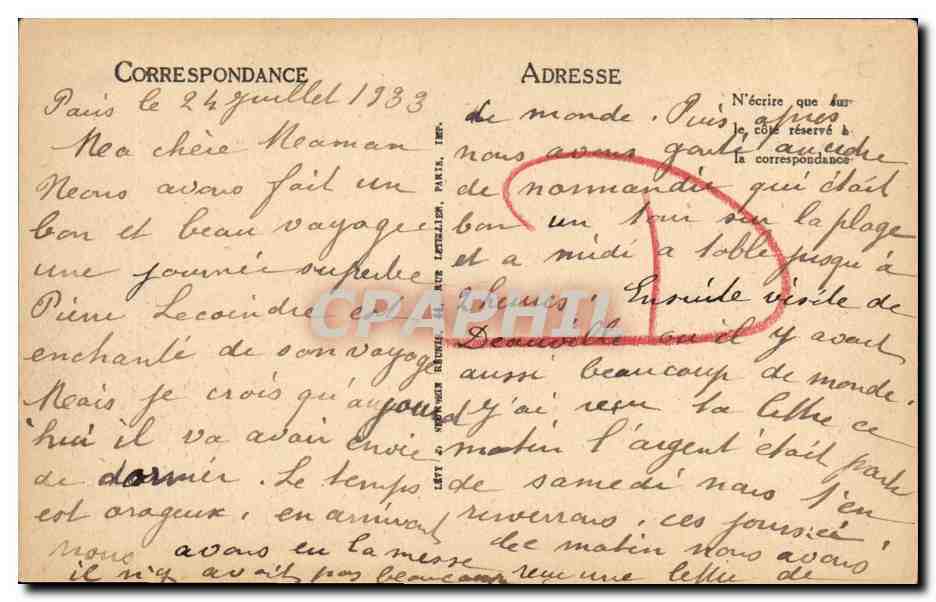 CORRESPONDANCE
Paris le 24 Juillet 1933
Ma chère Maman
Nous avons fait un
bon et beau voyage
une journée superbe
Pierre Lecoindre est
enchanté de son voyage
Mais je crois qu'aujourd
'hui il va avoir envie
de dormir. Le temps
est orageux, en arrivant
nous avons eu la messe
il n'y avait pas beaucoup
LÉVY & NEURDEIN RÉUNIS, 44, RUE LETELLIER, PARIS, IMP.
ADRESSE
N'écrire que sur
le côté réservé à
la correspondance
de monde. Puis après
nous avons goûté au cidre
de normandie qui était
bon un tour sur la plage
et a midi a table jusqu'à
2 heures. Ensuite visite de
Deauville ou il y avait
aussi beaucoup de monde.
J'ai reçu ta lettre ce
matin l'argent était parti
de samedi nous t'en
reverrons, ces jours ci
ce matin nous avons
reçu une lettre de
D
CPAPHIL